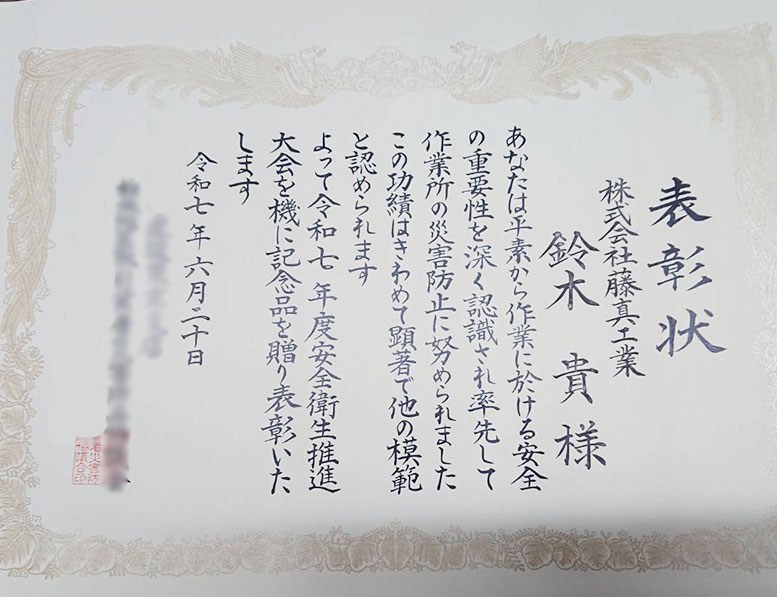 表彰状
株式会社藤真工業
鈴木 貴様
あなたは平素から作業に於ける安全
の重要性を深く認識され率先して
作業所の災害防止に努められました
この功績はきわめて顕著で他の模範
と認められます
よって令和七年度安全衛生推進
大会を機に記念品を贈り表彰いた
します
令和七年六月二十日